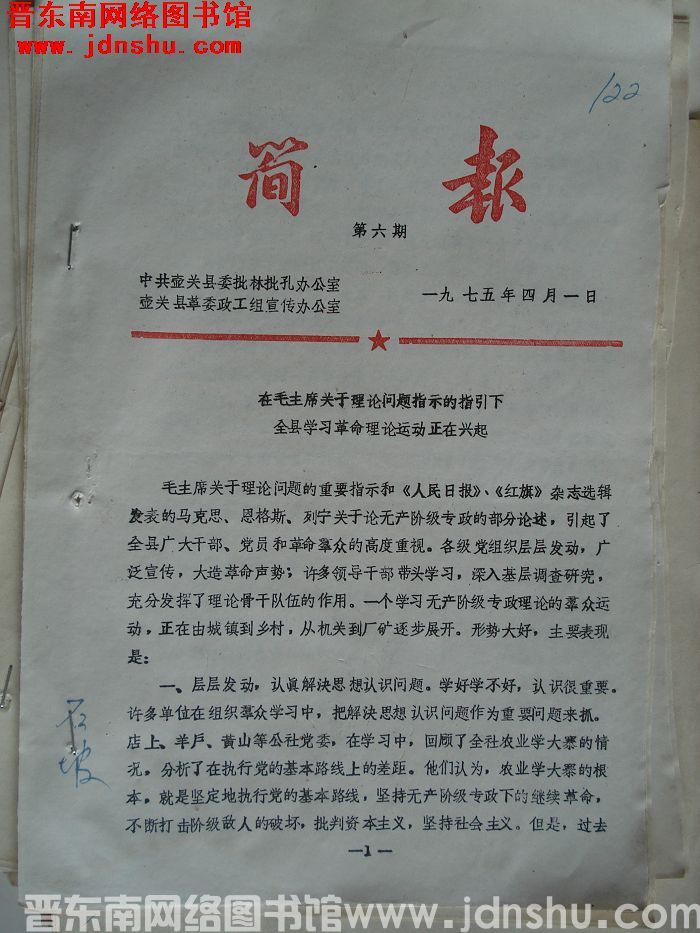 晋东南网络图书馆
www.jdnshu.com
122
简报
第六期
中共壶关县委批林批孔办公室
壶关县革委政工组宣传办公室
一九七五年四月一日
在毛主席关于理论问题指示的指引下
全县学习革命理论运动正在兴起
毛主席关于理论问题的重要指示和《人民日报》、《红旗》杂志选辑
发表的马克思、恩格斯、列宁关于论无产阶级专政的部分论述，引起了
全县广大干部、党员和革命羣众的高度重视。各级党组织层层发动，广
泛宣传，大造革命声势；许多领导干部带头学习，深入基层调查研究，
充分发挥了理论骨干队伍的作用。一个学习无产阶级专政理论的羣众运
动，正在由城镇到乡村，从机关到厂矿逐步展开。形势大好，主要表现
是：
一、层层发动，认眞解决思想认识问题。学好学不好，认识很重要。
许多单位在组织羣众学习中，把解决思想认识问题作为重要问题来抓。
店上、羊戶、黄山等公社党委，在学习中，回顾了全社农业学大寨的情
况，分析了在执行党的基本路线上的差距。他们认为，农业学大寨的根
本，就是坚定地执行党的基本路线，坚持无产阶级专政下的继续革命，
不断打击阶级敌人的破坏，批判资本主义，坚持社会主义。但是，过去
石坡
—1—
晋东南网络图书馆www.jdnshu.com